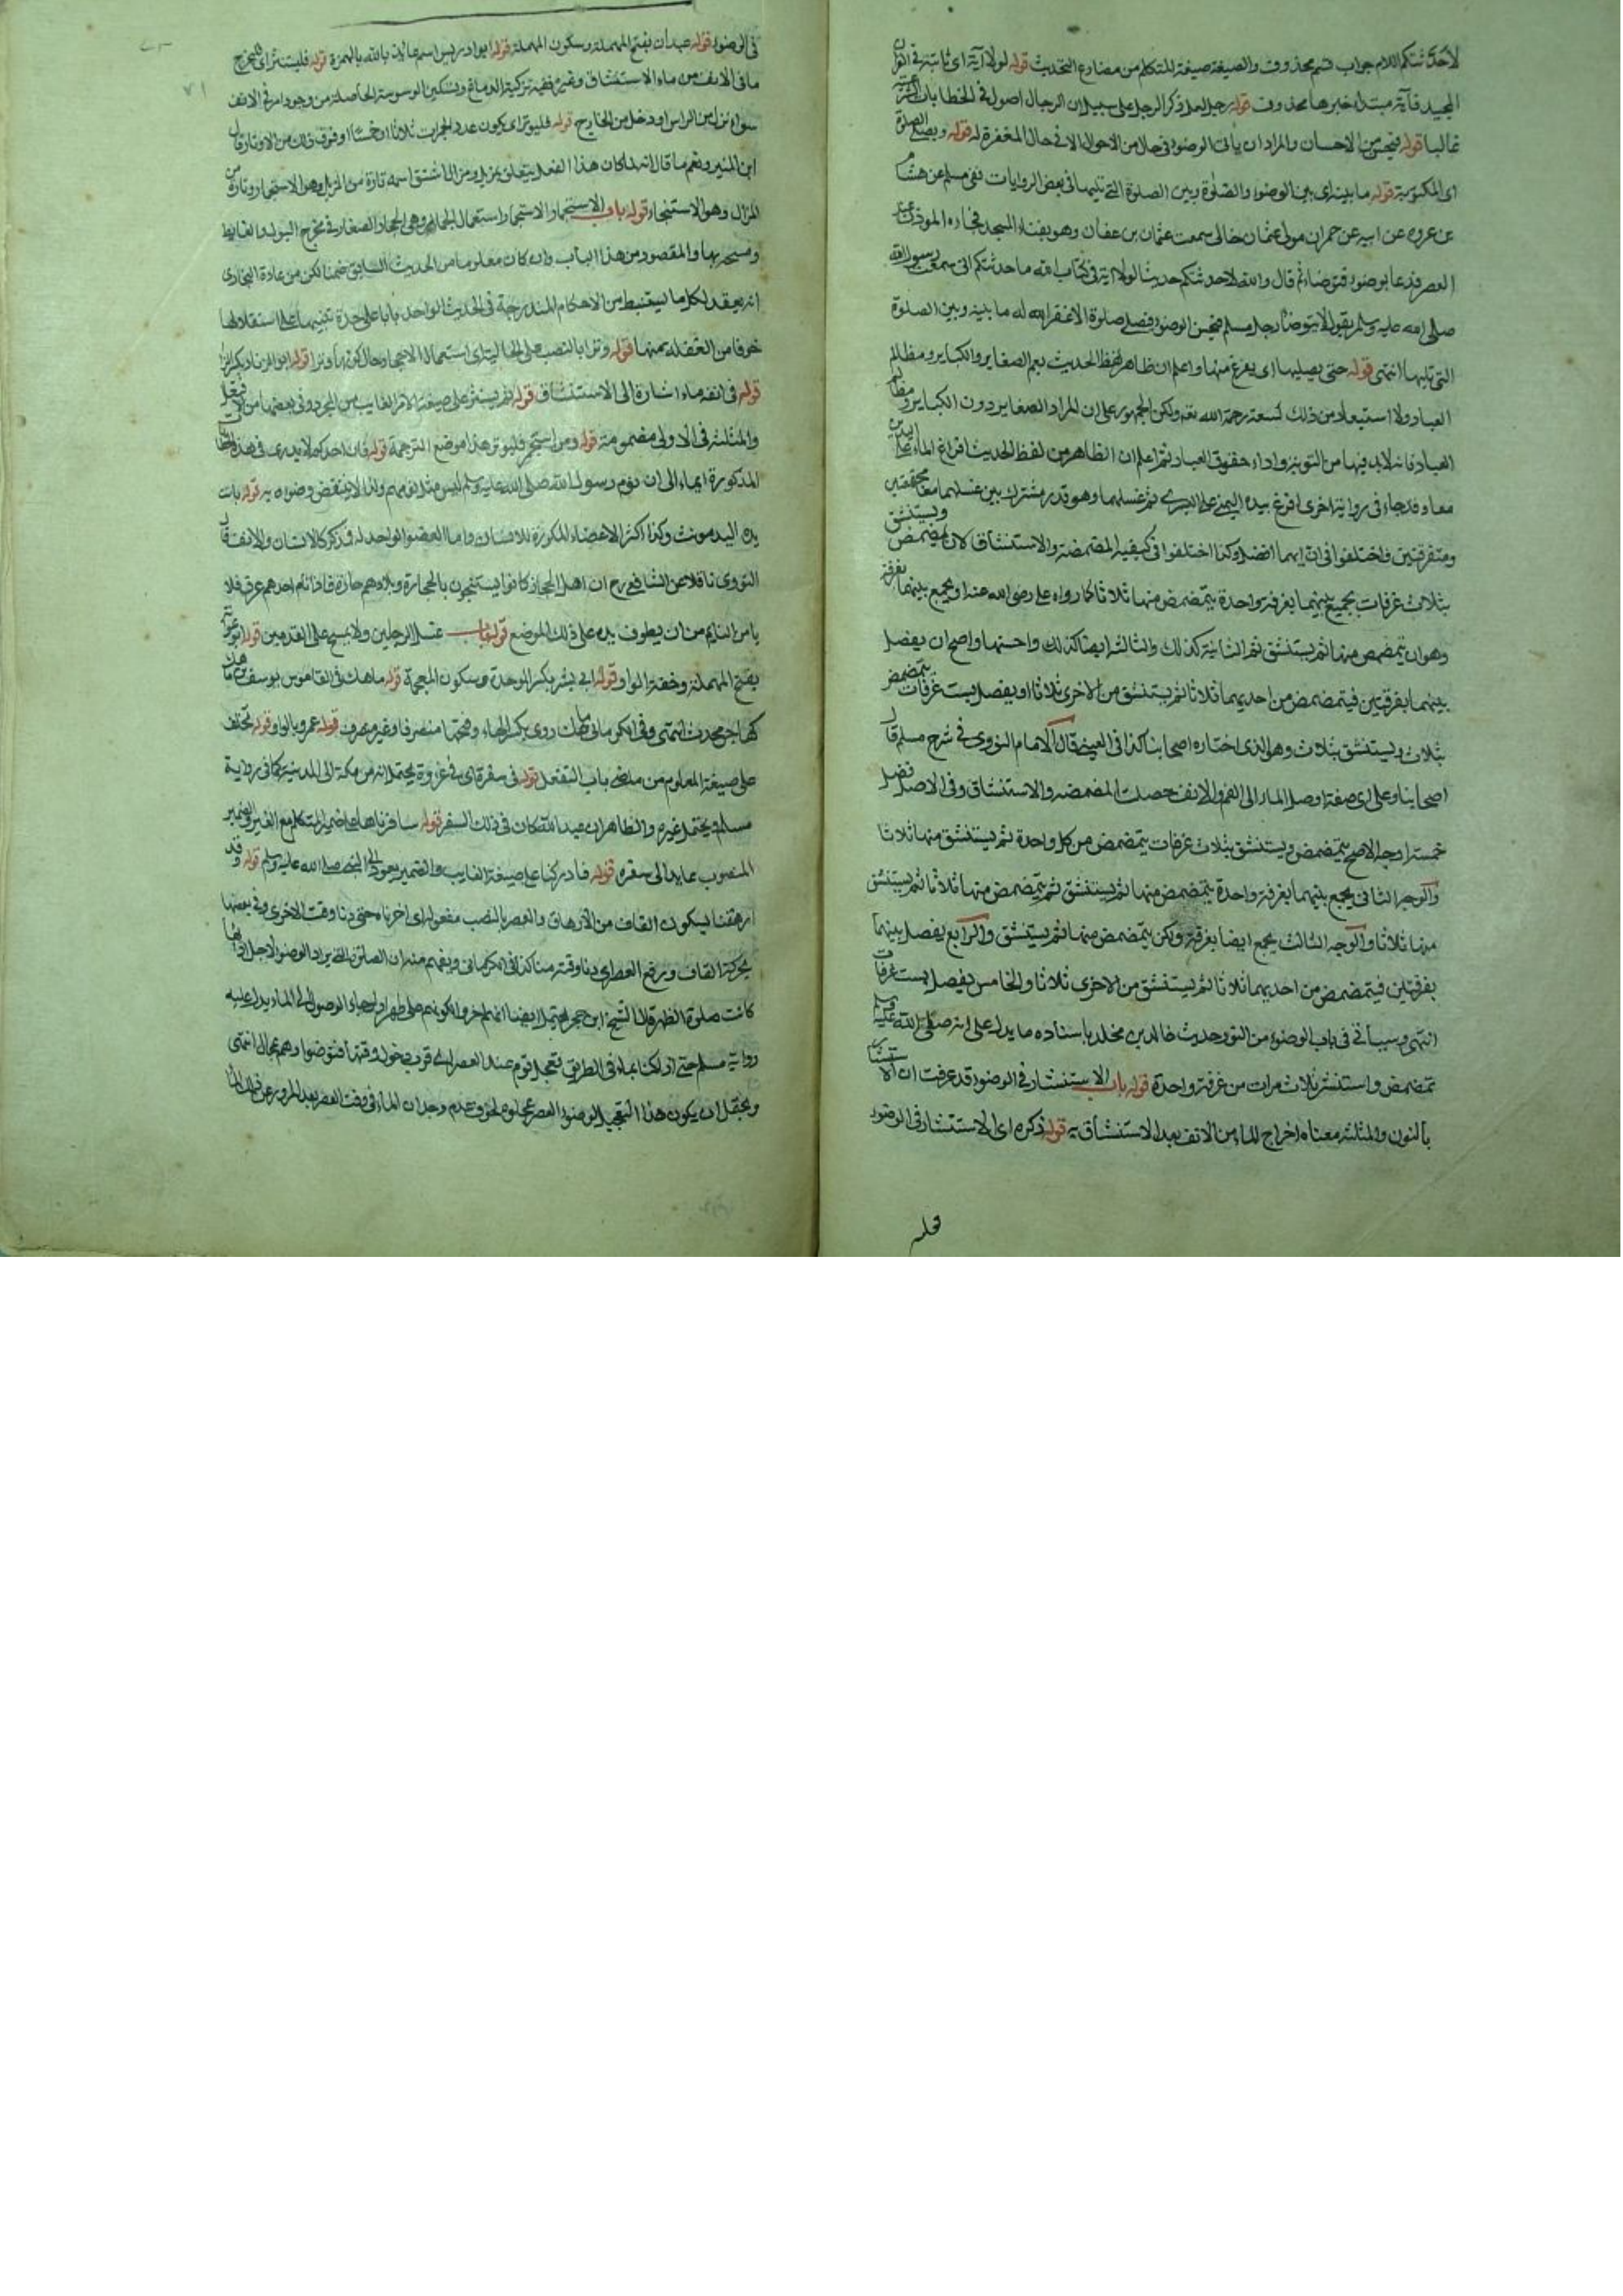 لاحدثنكم اللام جواب قسم محذوف والصيغة صيغة المتكلم من مضارع التحديث قوله لولا آية اى ثابتة فى القرآن
المجيد فآية مبتدا خبرها محذوف قوله رجل لعل ذكر الرجل على سبيل ان الرجال اصول فى الخطابات الشرعية
غالبا قوله فيحسن من الاحسان والمراد ان يأتى الوضوء فى حال من الاحوال الا فى حال المغفرة له قوله ويصلى الصلوة
اى المكتوبة قوله ما بينه اى بين الوضوء والصلوة وبين الصلوة التى تليها فى بعض الروايات ففى مسلم عن هشام
بن عروه عن ابيه عن حمران مولى عثمان قال سمعت عثمان بن عفان وهو بفناء المسجد فجاءه الموذن عند
العصر فدعا بوضوء فتوضاء ثم قال والله لاحدثنكم حديثا لولا اية فى كتاب الله ما حدثتكم انى سمعت رسول الله
صلى الله عليه وسلم يقول لا يتوضأ رجل مسلم فيحسن الوضوء فيصلى صلوة الا غفر الله له ما بينه وبين الصلوة
التى تليها انتهى قوله حتى يصليها اى يفرغ منها واعلم ان ظاهر لفظ الحديث يعم الصغاير والكباير ومظالم
العباد ولا استبعاد من ذلك لسعة رحمة الله نعم ولكن الجمهور على ان المراد الصغاير دون الكباير ومظالم
العباد فانه لابد فيها من التوبة واداء حقوق العباد ثم اعلم ان الظاهر من لفظ الحديث افراغ الماء على اليدين
معا وقد جاء فى رواية اخرى افرغ بيده اليمنى على اليسرى ثم غسلهما وهو قدر مشترك بين غسلهما معا مجتمعتين
ومتفرقتين واختلفوا فى ان ايهما افضل وكذا اختلفوا فى كيفية المضمضة والاستنشاق كان يمضمض ويستنشق
بثلاث غرفات يجمع بينهما بغرفة واحدة يتمضمض منها ثلاثا كما رواه على رضى الله عنه او يجمع بينهما بغرفة
وهو ان يتمضمض منها ثم يستنشق ثم الثانية كذلك والثالثة ايضا كذلك واحسنها واصح ان يفصل
بينهما بغرفتين فيتمضمض من احديهما ثلاثا ثم يستنشق من الاخرى ثلاثا او يفصل بست غرفات يتمضمض
بثلاث ويستنشق بثلاث وهو الذى اختاره اصحابنا كذا فى العينى قال الامام النووى فى شرح مسلم قال
اصحابنا وعلى اى صفة اوصل الماء الى الفم والانف حصلت المضمضة والاستنشاق وفى الافضل
خمسة اوجه الاصح يتمضمض ويستنشق بثلاث غرفات يتمضمض من كل واحدة ثم يستنشق منها ثلاثا
والوجه الثانى يجمع بينهما بغرفة واحدة يتمضمض منها ثم يستنشق ثم يتمضمض منها ثلاثا ثم يستنشق
منها ثلاثا والوجه الثالث يجمع ايضا بغرفة ولكن يتمضمض منها ثم يستنشق والرابع يفصل بينهما
بغرفتين فيتمضمض من احديهما ثلاثا ثم يستنشق من الاخرى ثلاثا والخامس يفصل بست غرفات
انتهى وسيأتى فى باب الوضوء من التور حديث خالد بن مخلد باسناده ما يدل على انه صلى الله عليه وسلم
تمضمض واستنثر ثلاث مرات من غرفة واحدة قوله باب الاستنثار فى الوضوء قد عرفت ان الاستنثار
بالنون والمثلثة معناه اخراج الماء من الانف بعد الاستنشاق قوله ذكره اى الاستنثار فى الوضوء
٧١
فى الوضوء قوله عبدان بفتح المهملة وسكون المهملة قوله ابو ادريس اسمه عائذ بالله بالهمزة قوله فليستنثر اى فليخرج
ما فى الانف من ماء الاستنشاق وغيره ففيه تزكية الدماغ وتسكين الوسوسة الحاصلة من وجود امر فى الانف
سواء نزل من الراس او دخل من الخارج قوله فليوتر اى يكون عدد الجمرات ثلاثا او خمسا او فوق ذلك من الاوتار قال
ابن المنير ونعم ما قال انه لما كان هذا الفعل يتعلق بمزيل ومزال اشتق اسمه تارة من المزيل وهو الاستجمار وتارة من
المزال وهو الاستنجاء قوله باب الاستجمار الاستجمار استعمال الجمار وهى الحجار الصغار فى مخرج البول والغايط
ومسحه بها والمقصود من هذا الباب وان كان معلوما من الحديث السابق ضمنا لكن من عادة البخارى
انه يعقد لكل ما يستنبط من الاحكام المندرجة فى الحديث الواحد بابا على حدة تنبيها على استقلالها
خوفا من الغفله منها قوله وترا بالنصب على الحالية اى استعمال الاحجار حال كونها وترا قوله ابو الزناد بكسر الزا
قوله فى انفه ماء اشارة الى الاستنشاق قوله ثم ليستنثر على صيغة الامر الغايب من المجرد وفى بعضها من الافتعال
والمثلثة فى الاولى مضمومة قوله ومن استجمر فليوتر هذا موضع الترجمة قوله فان احدكم لا يدرى فى هذه
المذكورة ايماء الى ان نوم رسول الله صلى الله عليه وسلم ليس مثل نومهم ولذا لا ينتقض وضوءه به قوله باتت
يده اليد مونث وكذا اكثر الاعضاء المكررة للانسان واما العضو الواحد له فذكر كالاسنان والانف قال
النووى ناقلا عن الشافعى رح ان اهل الحجاز كانوا يستنجون بالحجارة وبلادهم حارة فاذا نام احدهم عرق فلا
يامن النايم من ان يطوف يده على ذلك الموضع قوله باب غسل الرجلين ولا يمسح على القدمين قوله ابو عوانة
بفتح المهملة وخفة الواو قوله ابى بشر بكسر الموحدة وسكون المعجمة قوله ماهك فى القاموس يوسف بن ماهك
كهاجر محدث انتهى وفى الكرمانى ماهك روى بكسر الهاء وفتحها منصرفا وغير منصرف قوله عمرو بالواو قوله تخلف
على صيغة المعلوم من ماضى باب التفعل قوله فى سفرة اى فى غزوة يحتمل انه من مكة الى المدينة كما فى رواية
مسلم ويحتمل غيره والظاهر ان عبد الله كان فى ذلك السفر قوله سافرناها على ضمير المتكلم مع الغير والضمير
المنصوب عايد الى سفرة قوله فادركنا على صيغة الغايب والضمير يعود الى النبى صلى الله عليه وسلم قوله وقد
ارهقنا بسكون القاف من الارهاق والعصر بالنصب مفعوله اى اخرناه حتى دنا وقت الاخرى وفى بعضها
بحركة القاف ورفع العصر اى دنا وقته منا كذا فى الكرمانى ويفهم منه ان الصلوة التى يراد الوضوء لاجل ادائها
كانت صلوة الظهر قال الشيخ ابن حجر يحتمل ايضا انهم اخروا لكونهم على طهر او لرجاء الوصول الى الماء يدل عليه
رواية مسلم حتى اذا كنا بماء فى الطريق تعجل قوم عند العصر اى قرب دخول وقتها فتوضوا وهم عجال انتهى
ويحتمل ان يكون هذا التعجيل لوضوء العصر عجلوه لخوف عدم وجدان الماء فى وقت العصر بعد المرور عن ذلك الماء